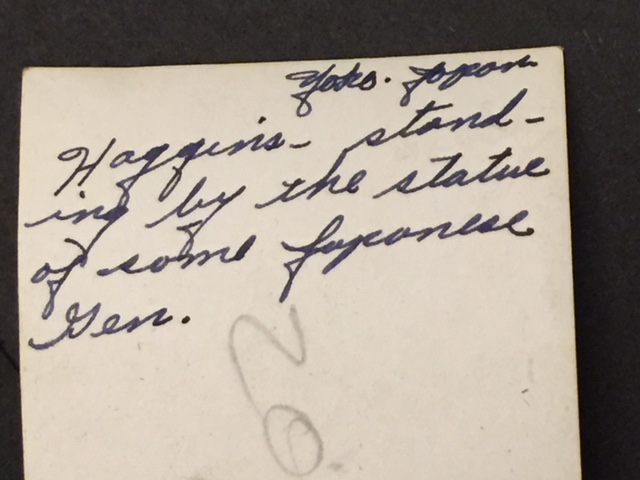 Yoko. Japan
Haggins- stand-
ing by the statue
of some Japanese
Gen.
62